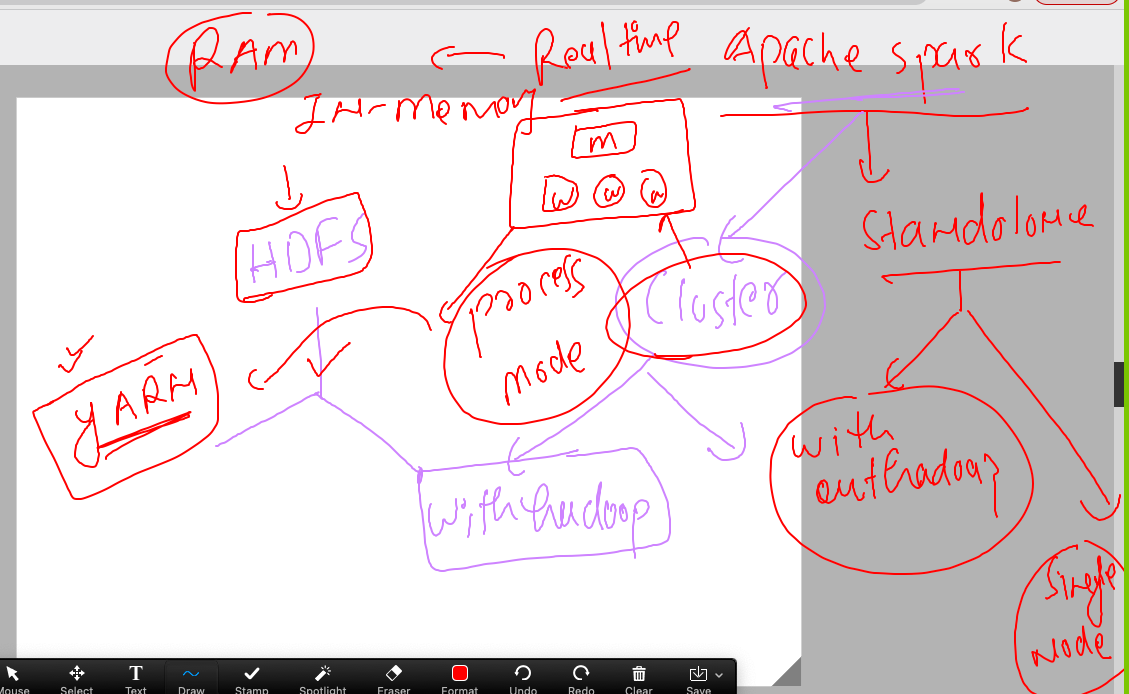 RAM
Realtime
Apache spark
IN-memory
m
w w w
HDFS
Standalone
process
mode
Cluster
YARN
with
outhadoop
withhadoop
Single
Node
Mouse
Select
Text
Draw
Stamp
Spotlight
Eraser
Format
Undo
Redo
Clear
Save